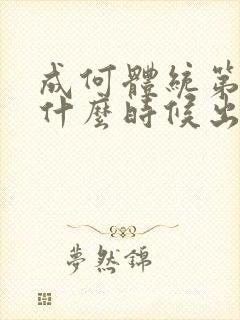 成何體統第
什麼時候出
夢然錦